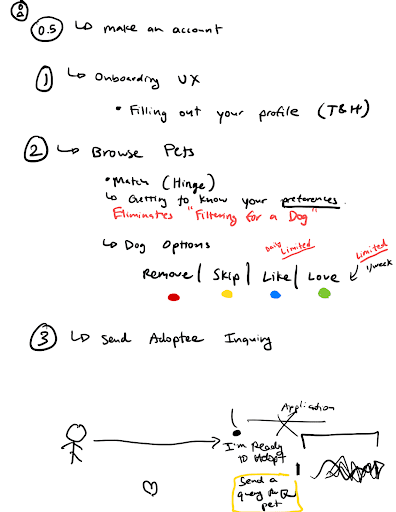 0.5 ↳ make an account
1 ↳ Onboarding UX
• Filling out your profile (T&H)
2 ↳ Browse Pets
• Match (Hinge)
↳ Getting to know your preferences.
Eliminates "Filtering for a Dog"
↳ Dog Options
Daily Limited
Limited
1/week
Remove | Skip | Like | Love
3 ↳ Send Adoptee Inquiry
Application
!
I'm Ready
to Adopt
Send a
query
pet